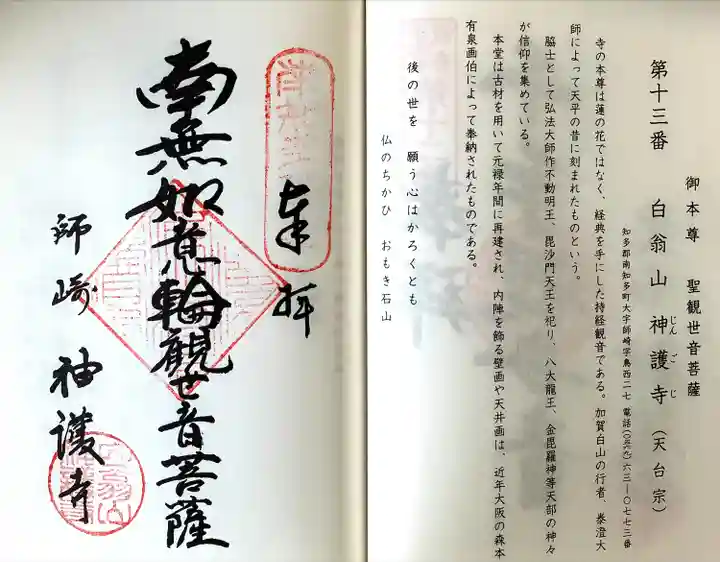 御本尊　聖観世音菩薩
第十三番　白翁山　神護寺（天台宗）
じんごじ
知多郡南知多町大字師崎字鳥西二七　電話(〇五六九)六三―〇七七三番
寺の本尊は蓮の花ではなく、経典を手にした持経観音である。加賀白山の行者、泰澄大
師によって天平の昔に刻まれたものという。
脇士として弘法大師作不動明王、毘沙門天王を祀り、八大龍王、金毘羅神等天部の神々
が信仰を集めている。
本堂は古材を用いて元禄年間に再建され、内陣を飾る壁画や天井画は、近年大阪の森本
有泉画伯によって奉納されたものである。
後の世を　願う心はかろくとも
仏のちかひ　おもき石山
奉拝
南無如意輪観世音菩薩
師崎　神護寺